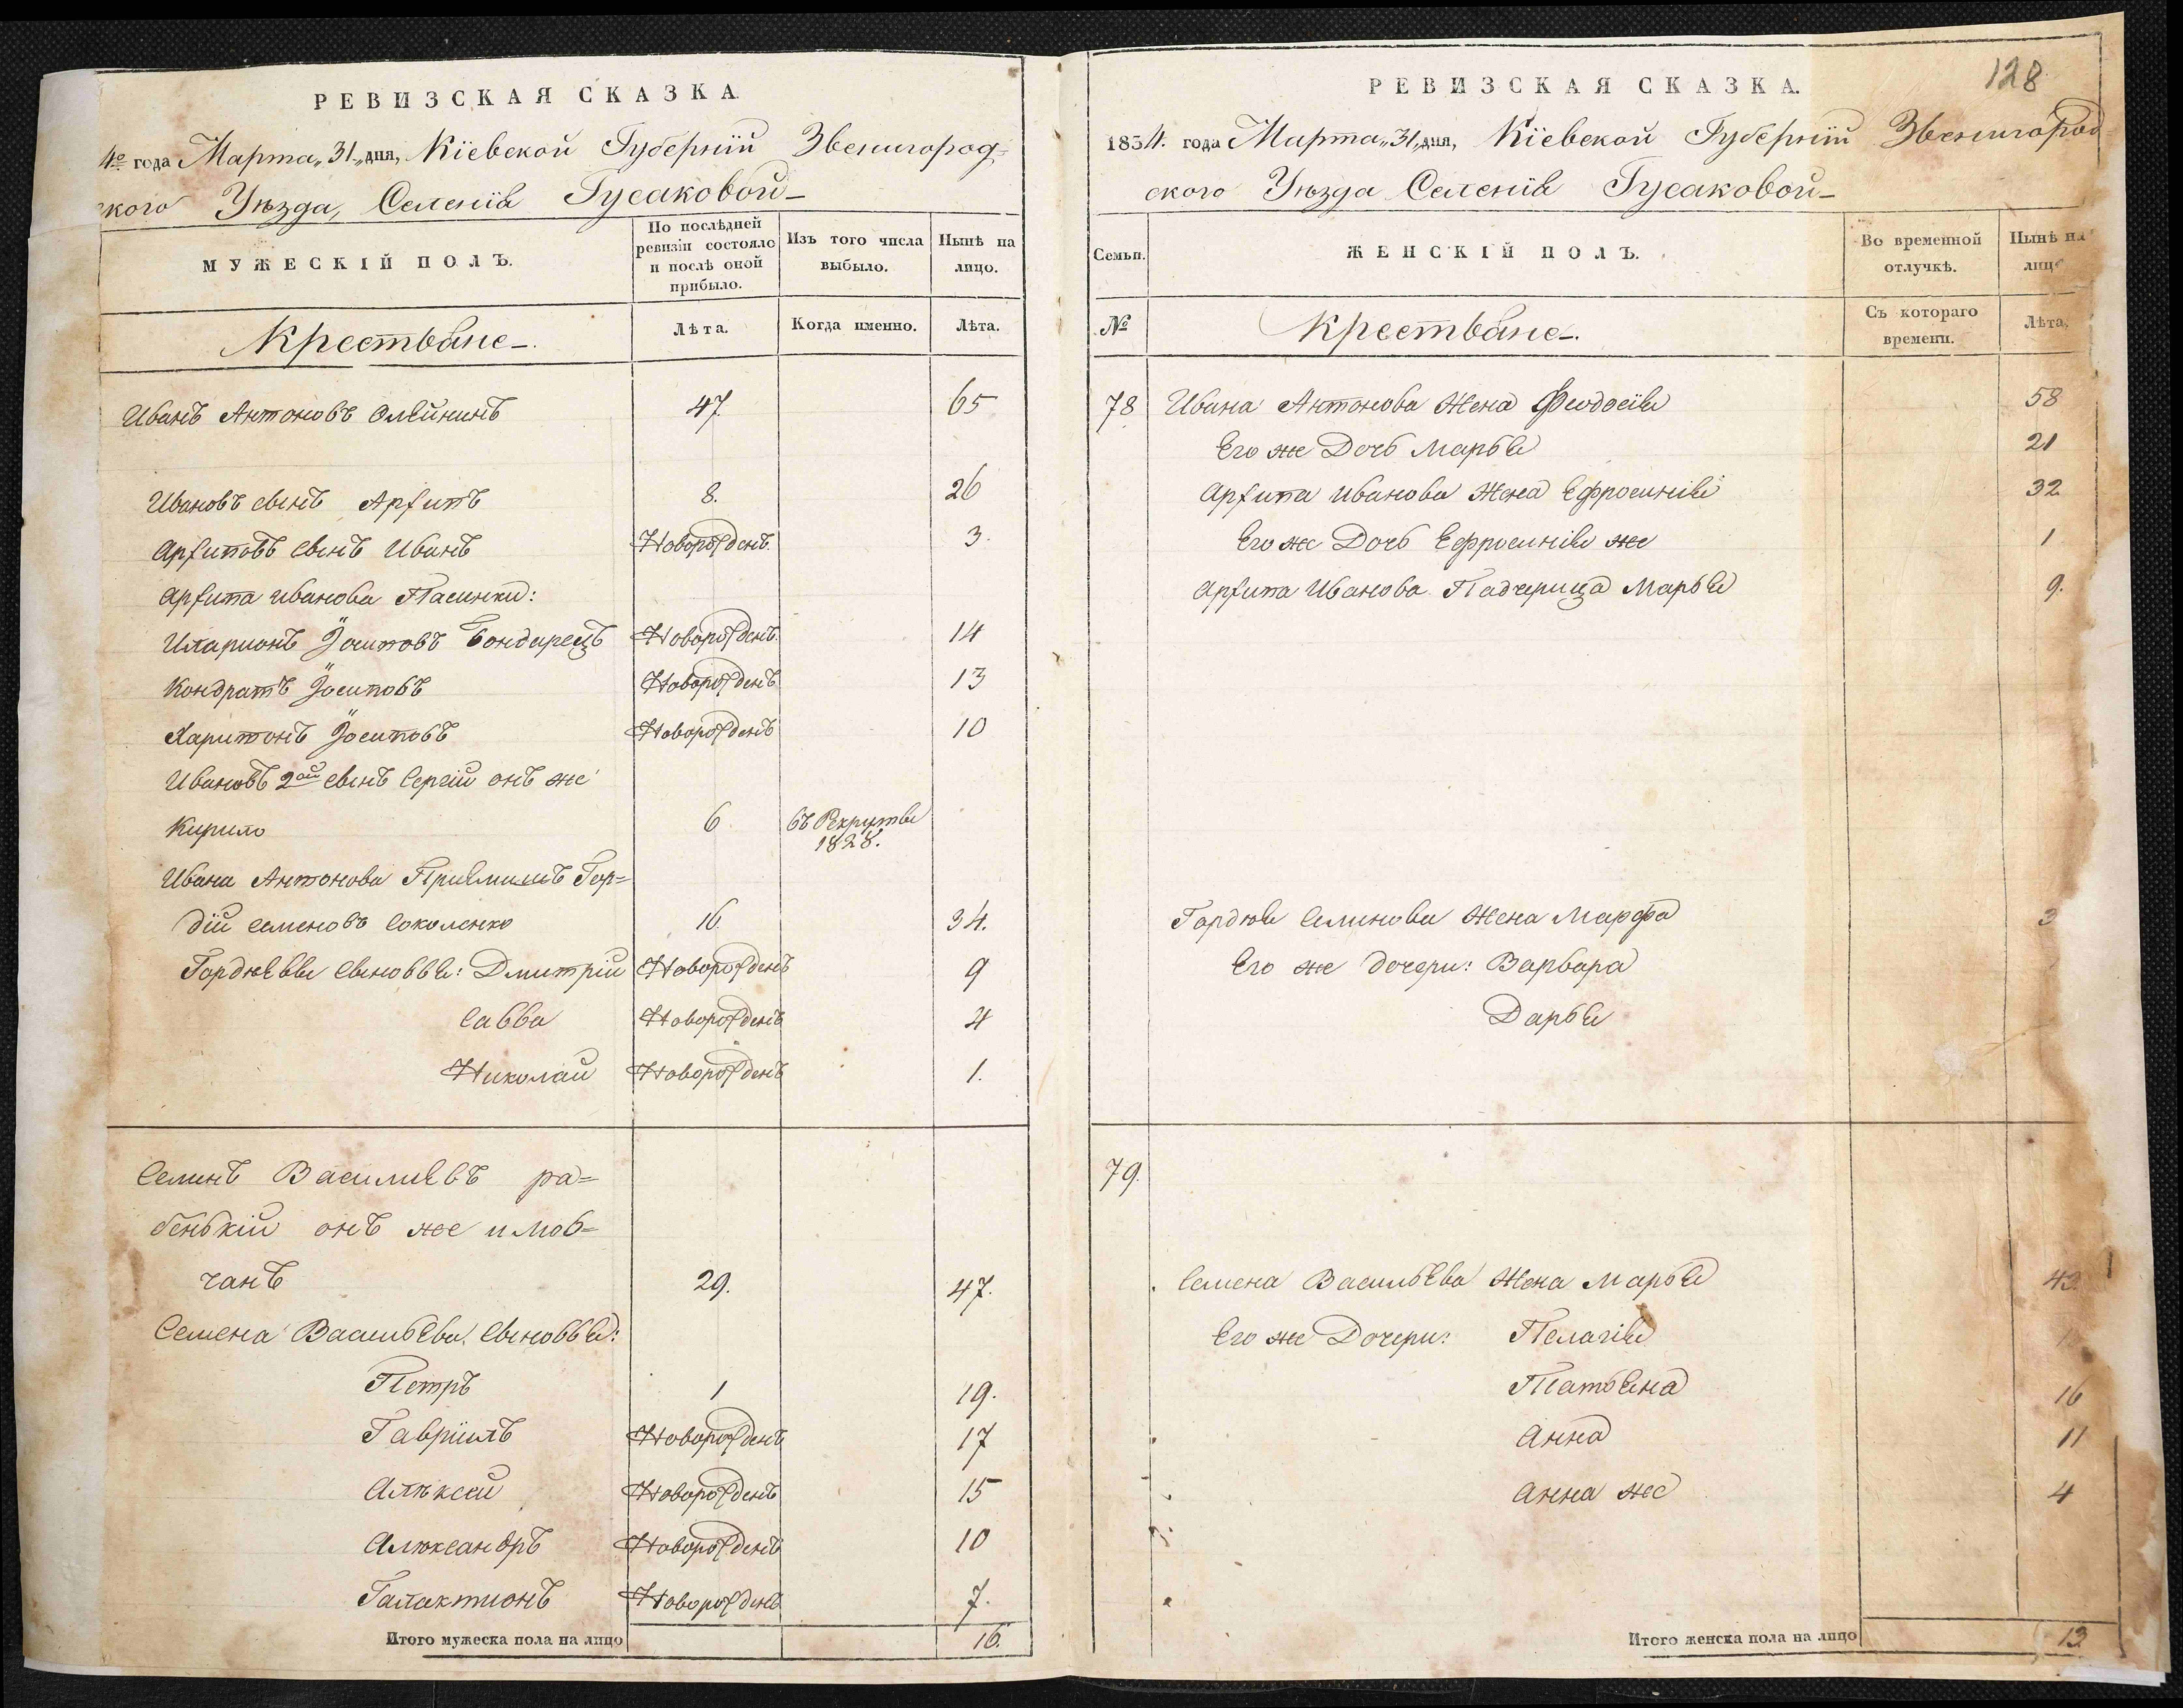 РЕВИЗСКАЯ СКАЗКА
4го года Марта „31„ дня, Кіевской Губерніи Звенигород-
ского Уѣзда, Селенія Гусаковой
МУЖЕСКІЙ ПОЛЪ.
По послѣдней ревизіи состояло и послѣ оной прибыло.
Изъ того числа выбыло.
Нынѣ на лицо.
Крестьяне
Лѣта.
Когда именно.
Лѣта.
Иванъ Антоновъ Олейникъ 47 65
Ивановъ сынъ Архипъ 8. 26
Архиповъ сынъ Иванъ Новорожденъ 3.
Архипа Иванова Пасинки:
Иларионъ Іосиповъ Бондарецъ Новорожденъ 14
Кондратъ Іосиповъ Новорожденъ 13
Харитонъ Іосиповъ Новорожденъ 10
Ивановъ 2ой сынъ Сергій онъ же
Кирило 6 въ Рекруты
1828.
Ивана Антонова Пріемишъ Гор=
дій Семеновъ Соколенко 16. 34.
Гордѣевы сыновья: Дмитрій Новорожденъ 9
Савва Новорожденъ 4
Николай Новорожденъ 1.
Семенъ Василіевъ ра=
бенькій онъ же и мов=
чанъ 29. 47.
Семена Васильева Сыновья:
Петръ 1 19.
Гавріилъ Новорожденъ 17
Алѣксей Новорожденъ 15
Алѣксандръ Новорожденъ 10
Галактионъ Новорожденъ 7.
Итого мужеска пола на лицо 16.
128
РЕВИЗСКАЯ СКАЗКА.
1834. года Марта „31„ дня, Кіевской Губерніи Звенигород
ского Уѣзда Селенія Гусаковой
Семьи.
ЖЕНСКІЙ ПОЛЪ.
Во временной отлучкѣ.
Нынѣ на лицо
№
Крестьяне
Съ котораго времени.
Лѣта.
78 Ивана Антонова Жена Феодосія 58
Его же Дочь Марья 21
Архипа Иванова Жена Ефросинія 32
Его же Дочь Ефросинія же 1
Архипа Иванова Падчерица Марья 9.
Гордѣя Семенова Жена Марфа 3
Его же дочери: Варвара
Дарья
79.
Семена Васильева Жена Марья 43.
Его же Дочери: Пелагія
Татьяна 16
Анна 11
Анна же 4
Итого женска пола на лицо 13